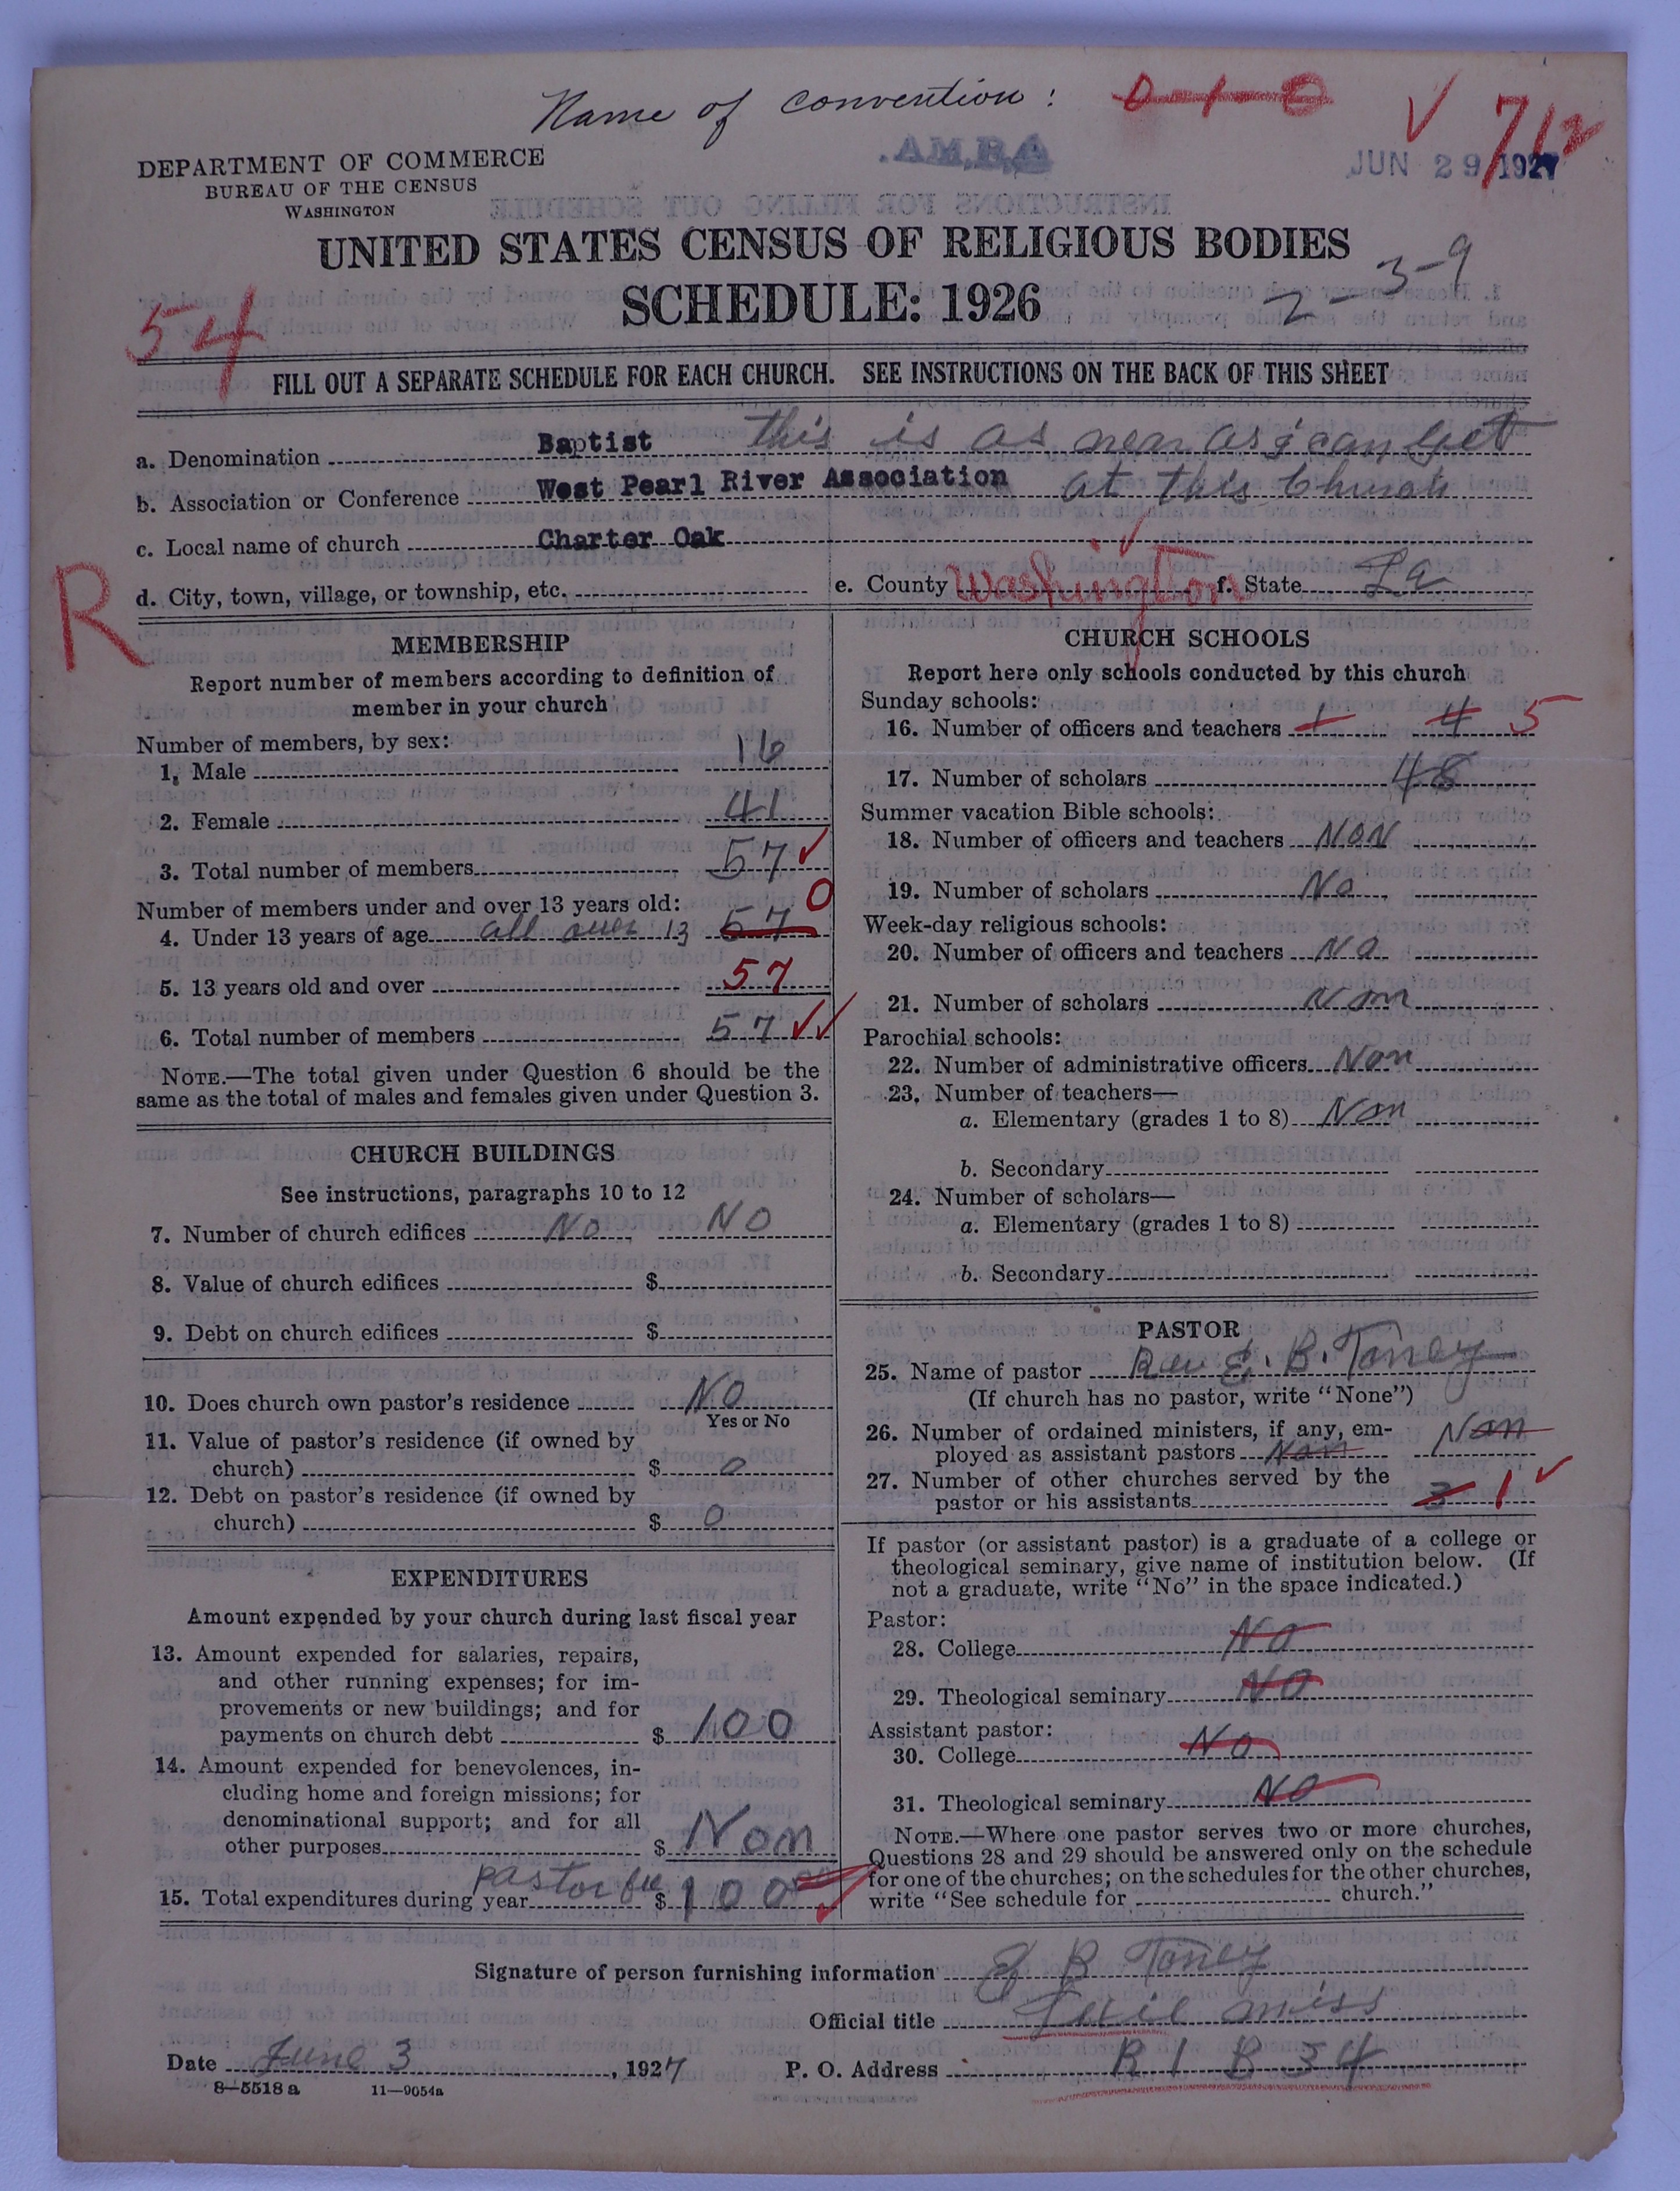 Name of convention : 0-1-0 √ 7/12
A.B.MA.
JUN 29 1927
DEPARTMENT OF COMMERCE
BUREAU OF THE CENSUS
WASHINGTON
UNITED STATES CENSUS OF RELIGIOUS BODIES
SCHEDULE: 1926
2-3-9
54
FILL OUT A SEPARATE SCHEDULE FOR EACH CHURCH. SEE INSTRUCTIONS ON THE BACK OF THIS SHEET
a. Denomination Baptist this is as near as i can get
b. Association or Conference West Pearl River Association at this Church
c. Local name of church Charter Oak
R
d. City, town, village, or township, etc. e. County Washington f. State La
MEMBERSHIP
Report number of members according to definition of
member in your church
Number of members, by sex:
1. Male 16
2. Female 41
3. Total number of members 57 ✓
Number of members under and over 13 years old: 0
4. Under 13 years of age all over 13 57
5. 13 years old and over 57
6. Total number of members 57 ✓✓
NOTE.—The total given under Question 6 should be the
same as the total of males and females given under Question 3.
CHURCH BUILDINGS
See instructions, paragraphs 10 to 12
7. Number of church edifices No NO
8. Value of church edifices $
9. Debt on church edifices $
10. Does church own pastor's residence NO
Yes or No
11. Value of pastor's residence (if owned by
church) $ 0
12. Debt on pastor's residence (if owned by
church) $ 0
EXPENDITURES
Amount expended by your church during last fiscal year
13. Amount expended for salaries, repairs,
and other running expenses; for im-
provements or new buildings; and for
payments on church debt $ 100
14. Amount expended for benevolences, in-
cluding home and foreign missions; for
denominational support; and for all
other purposes $ Non
pastor
15. Total expenditures during year $ 100 00 ✓
CHURCH SCHOOLS
Report here only schools conducted by this church
Sunday schools:
16. Number of officers and teachers 1 4 5
17. Number of scholars 48
Summer vacation Bible schools:
18. Number of officers and teachers NON
19. Number of scholars No
Week-day religious schools:
20. Number of officers and teachers No
21. Number of scholars Non
Parochial schools:
22. Number of administrative officers Non
23. Number of teachers—
a. Elementary (grades 1 to 8) Non
b. Secondary
24. Number of scholars—
a. Elementary (grades 1 to 8)
b. Secondary
PASTOR
25. Name of pastor Rev E. B. Toney
(If church has no pastor, write "None")
26. Number of ordained ministers, if any, em-
ployed as assistant pastors Non Non
27. Number of other churches served by the
pastor or his assistants 3 1 ✓
If pastor (or assistant pastor) is a graduate of a college or
theological seminary, give name of institution below. (If
not a graduate, write "No" in the space indicated.)
Pastor:
28. College No
29. Theological seminary No
Assistant pastor:
30. College No
31. Theological seminary No
NOTE.—Where one pastor serves two or more churches,
Questions 28 and 29 should be answered only on the schedule
for one of the churches; on the schedules for the other churches,
write "See schedule for church."
Signature of person furnishing information E B Toney
Official title miss
Date June 3, 1927 P. O. Address R 1 B 34
8—5518 a 11—9054a